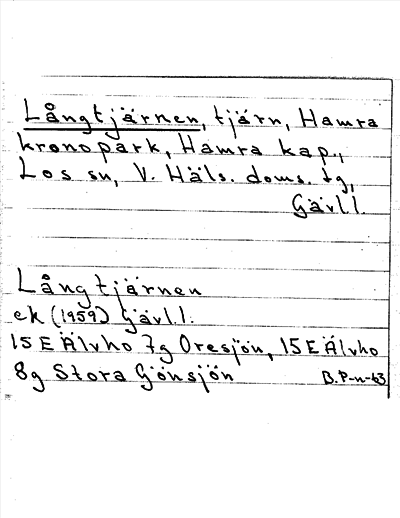 Långtjärnen, tjärn, Hamra
kronopark, Hamra kap.,
Los sn, V. Häls. doms. tg,
Gävl l.
Långtjärnen
ek (1959) Gävl.l.
15E Älvho 7g Oresjön, 15E Älvho
8g Stora Gönsjön B.P-n-63